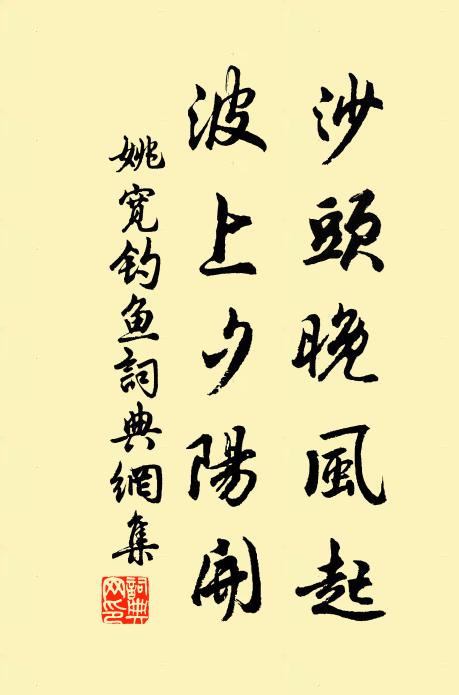 沙頭晚風起
波上夕陽開
姚寬釣魚詞典網集
詞典網印